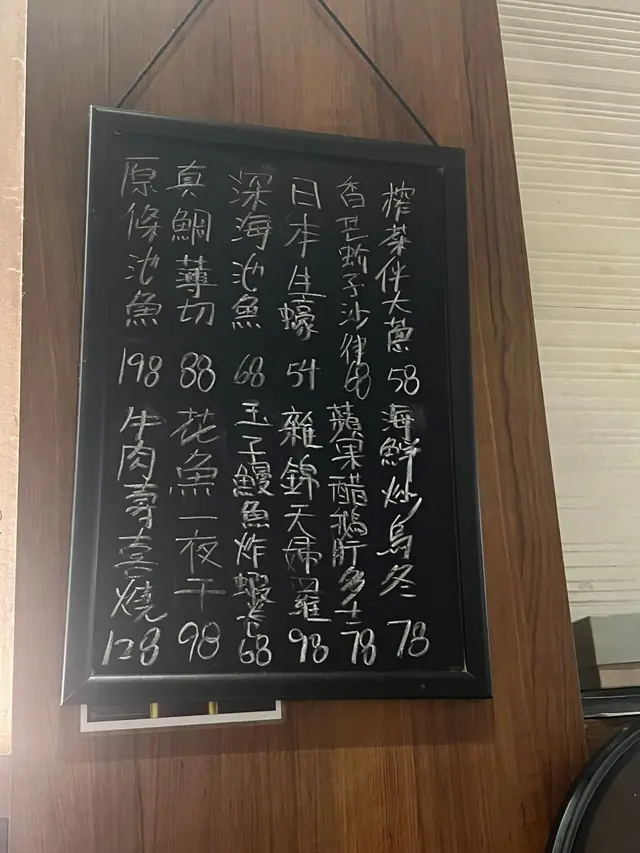 榨菜伴大蔥 58
香芒蚧子沙律 68
日本生蠔 54
深海池魚 68
真鯛薄切 88
原條池魚 198
海鮮炒烏冬 78
蘋果醋鵝肝多士 78
雜錦天婦羅 98
玉子鰻魚炸蝦卷 68
花魚一夜干 98
牛肉壽喜燒 128